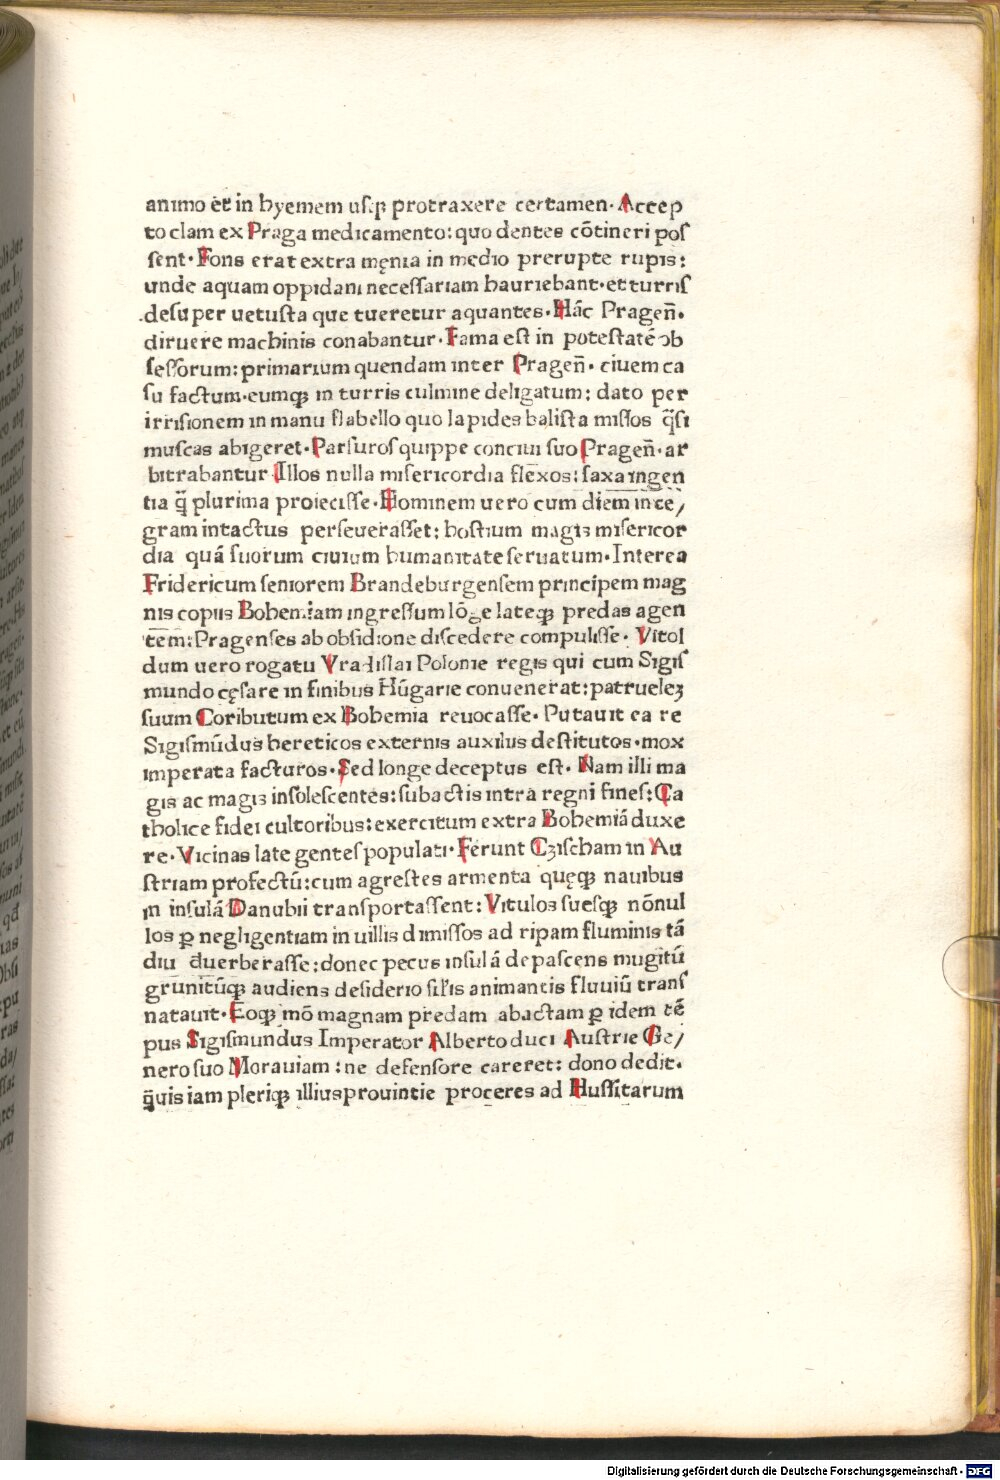 animo et in hyemem uſqꝫ protraxere certamen· Accep
to clam ex Praga medicamento: quo dentes cōtineri poſ
ſent· Fons erat extra męnia in medio prerupte rupis:
unde aquam oppidani neceſſariam hauriebant· et turriſ
deſuper uetuſta que tueretur aquantes· Hāc Pragen̄·
diruere machinis conabantur· Fama eſt in poteſtatē ob
ſeſſorum: primarium quendam inter Pragen̄· ciuem ca
ſu factum· eumqꝫ in turris culmine deligatum: dato per
irriſionem in manu flabello quo lapides baliſta miſſos q̄ſi
muſcas abigeret· Parſuroſ quippe conciui ſuo Pragen̄· ar
bitrabantur Illos nulla miſericordia flexos: ſaxa ingen
tia q̄ plurima proieciſſe· Hominem uero cum diem inte/
gram intactus perſeueraſſet: hoſtium magis miſericor
dia quā ſuorum ciuium humanitate ſeruatum· Interea
Fridericum ſeniorem Brandeburgenſem principem mag
nis copiis Bohemiam ingreſſum lōge lateqꝫ predas agen
tem: Pragenſes ab obſidione diſcedere compuliſſe· Vitol
dum uero rogatu Vradiſlai Polonie regis qui cum Sigiſ
mundo cęſare in finibus Hūgarie conuenerat: patrueleꝫ
ſuum Coributum ex Bohemia reuocaſſe· Putauit ea re
Sigiſmūdus hereticos externis auxiliis deſtitutos· mox
imperata facturos· Sed longe deceptus eſt· Nam illi ma
gis ac magis inſoleſcentes: ſubactis intra regni fineſ: Ca
tholice fidei cultoribus: exercitum extra Bohemiā duxe
re· Vicinas late genteſ populati· Ferunt Cziſcham in Au
ſtriam profectū: cum agreſtes armenta quęqꝫ nauibus
in inſulā Danubii tranſportaſſent: Vitulos ſueſqꝫ nōnul
los ꝑ negligentiam in uillis dimiſſos ad ripam fluminis tā
diu duerberaſſe: donec pecus inſulā depaſcens mugitū
grunitūqꝫ audiens deſiderio ſil̄is animantis fluuiū tranſ
natauit· Eoqꝫ mō magnam predam abactam ꝑ idem tē
pus Sigiſmundus Imperator Alberto duci Auſtrie Ge/
nero ſuo Morauiam: ne defenſore careret: dono dedit·
q̄uis iam pleriqꝫ illius prouintie proceres ad Huſſitarum
Digitalisierung gefördert durch die Deutsche Forschungsgemeinschaft - DFG